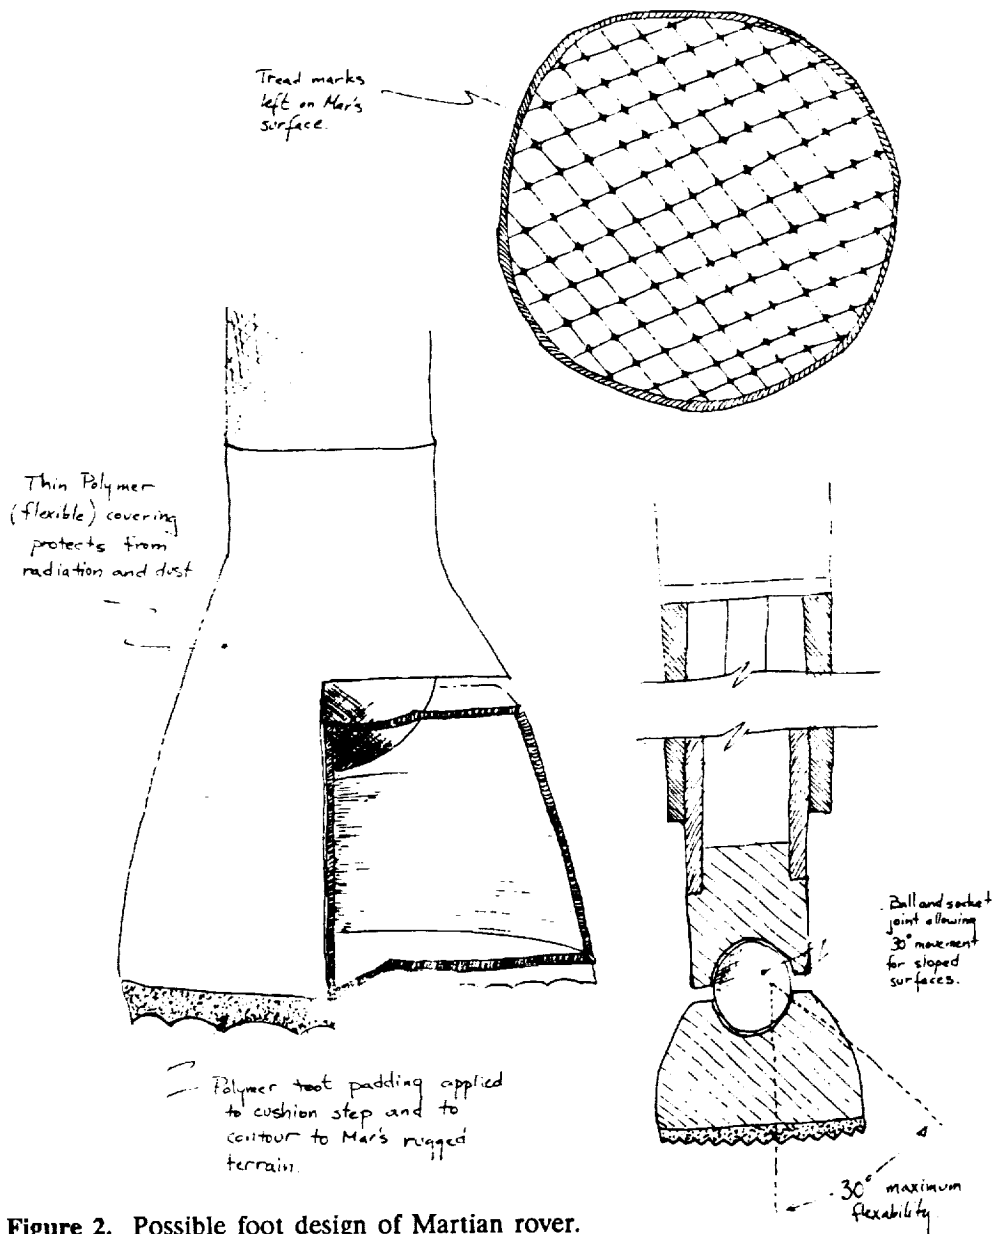 Tread marks
left on Mar's
surface.
Thin Polymer
(flexible) covering
protects from
radiation and dust
Ball and socket
joint allowing
30° movement
for sloped
surfaces.
Polymer foot padding applied
to cushion step and to
contour to Mar's rugged
terrain.
30° maximum
flexability
Figure 2. Possible foot design of Martian rover.